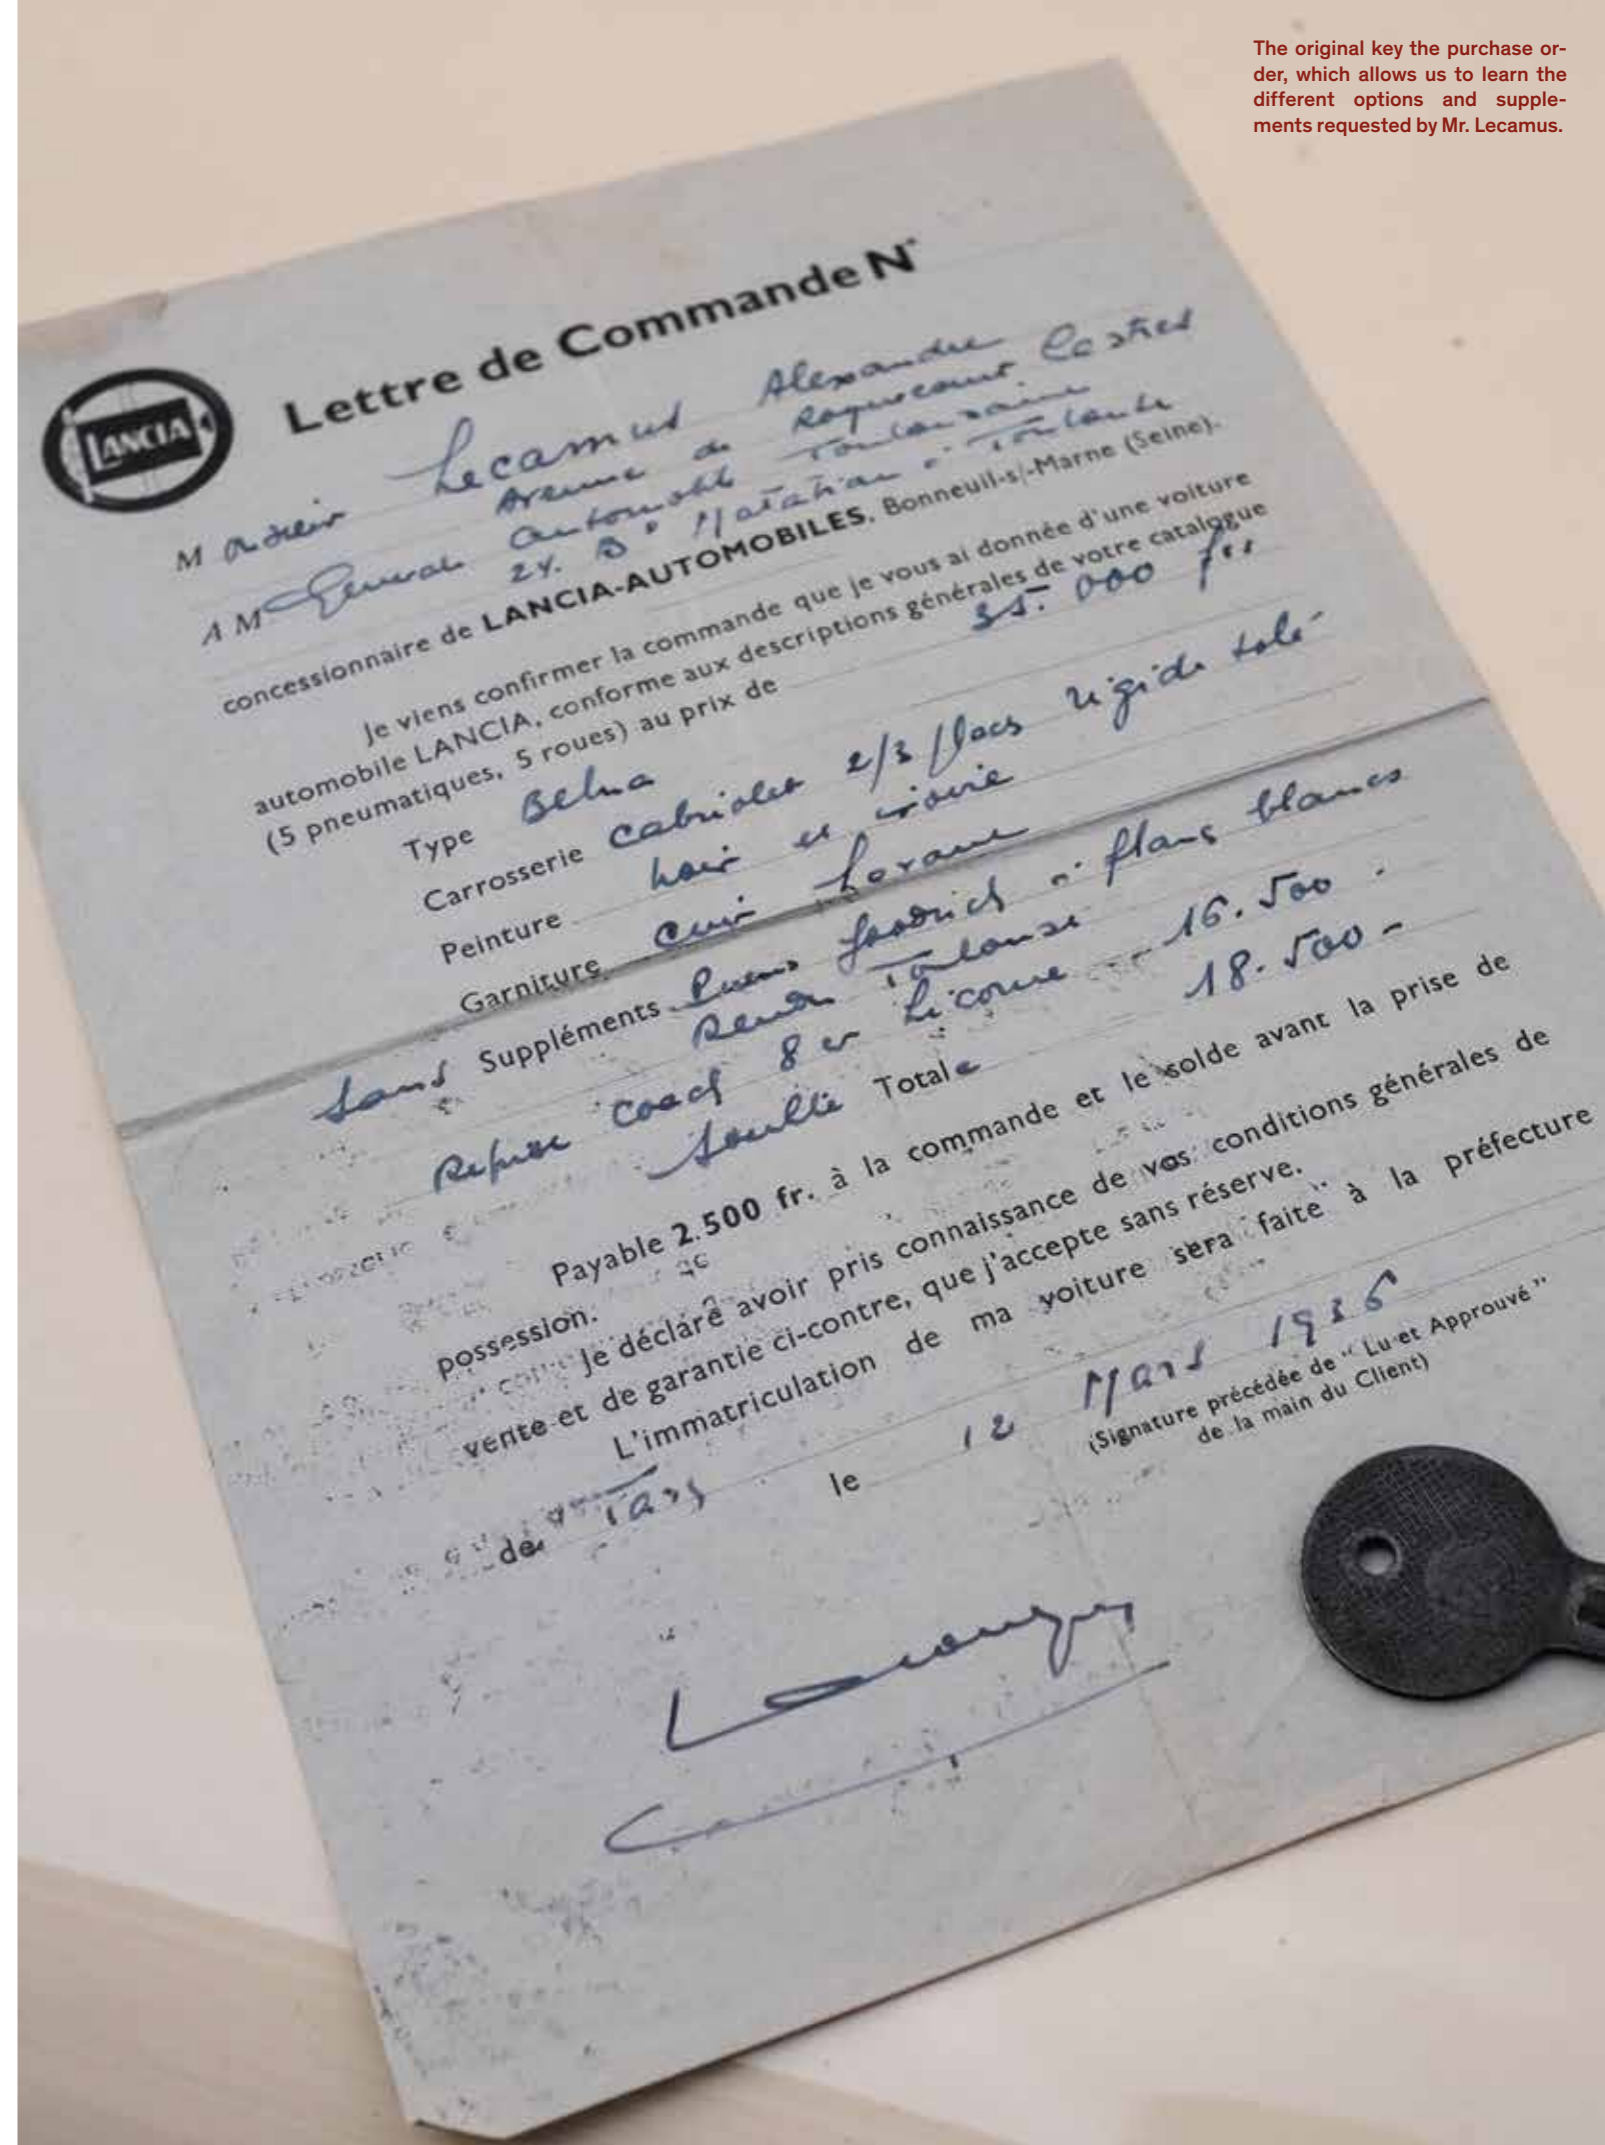 The original key the purchase or-
der, which allows us to learn the
different options and supple-
ments requested by Mr. Lecamus.
Lettre de Commande N°
LANCIA
Monsieur Lecamus Alexandre
Avenue de Roquecourt Castres
A M Générale Automobile Toulousaine
24. Bd Matabiau à Toulouse
concessionnaire de LANCIA-AUTOMOBILES, Bonneuil-s/-Marne (Seine).
Je viens confirmer la commande que je vous ai donnée d'une voiture
automobile LANCIA, conforme aux descriptions générales de votre catalogue
(5 pneumatiques, 5 roues) au prix de 35.000 frs
Type Belna
Carrosserie Cabriolet 2/3 places rigide tolé
Peinture noir et ivoire
Garniture Cuir
Sans Suppléments Pneus Goodrich à flancs blancs
Rendu Toulouse
Reprise coach 8 cv Licorne 16.500
Soulte Totale 18.500 -
Payable 2.500 fr. à la commande et le solde avant la prise de
possession.
Je déclare avoir pris connaissance de vos conditions générales de
vente et de garantie ci-contre, que j'accepte sans réserve.
L'immatriculation de ma voiture sera faite à la préfecture
de Tarn le 12 Mars 1936
(Signature précédée de "Lu et Approuvé"
de la main du Client)